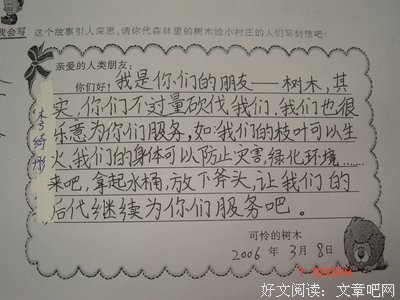 我会写 这个故事引人深思,请你代森林里的树木给小村庄的人们写封信吧!
亲爱的人类朋友:
你们好!我是你们的朋友——树木,其
实,你们不过量砍伐我们,我们也很
乐意为你们服务,如:我们的枝叶可以生
火,我们的身体可以防止灾害,绿化环境……
来吧,拿起水桶,放下斧头,让我们的
后代继续为你们服务吧。
可怜的树木
2006年3月8日
李绮彤
好文阅读:文章吧网